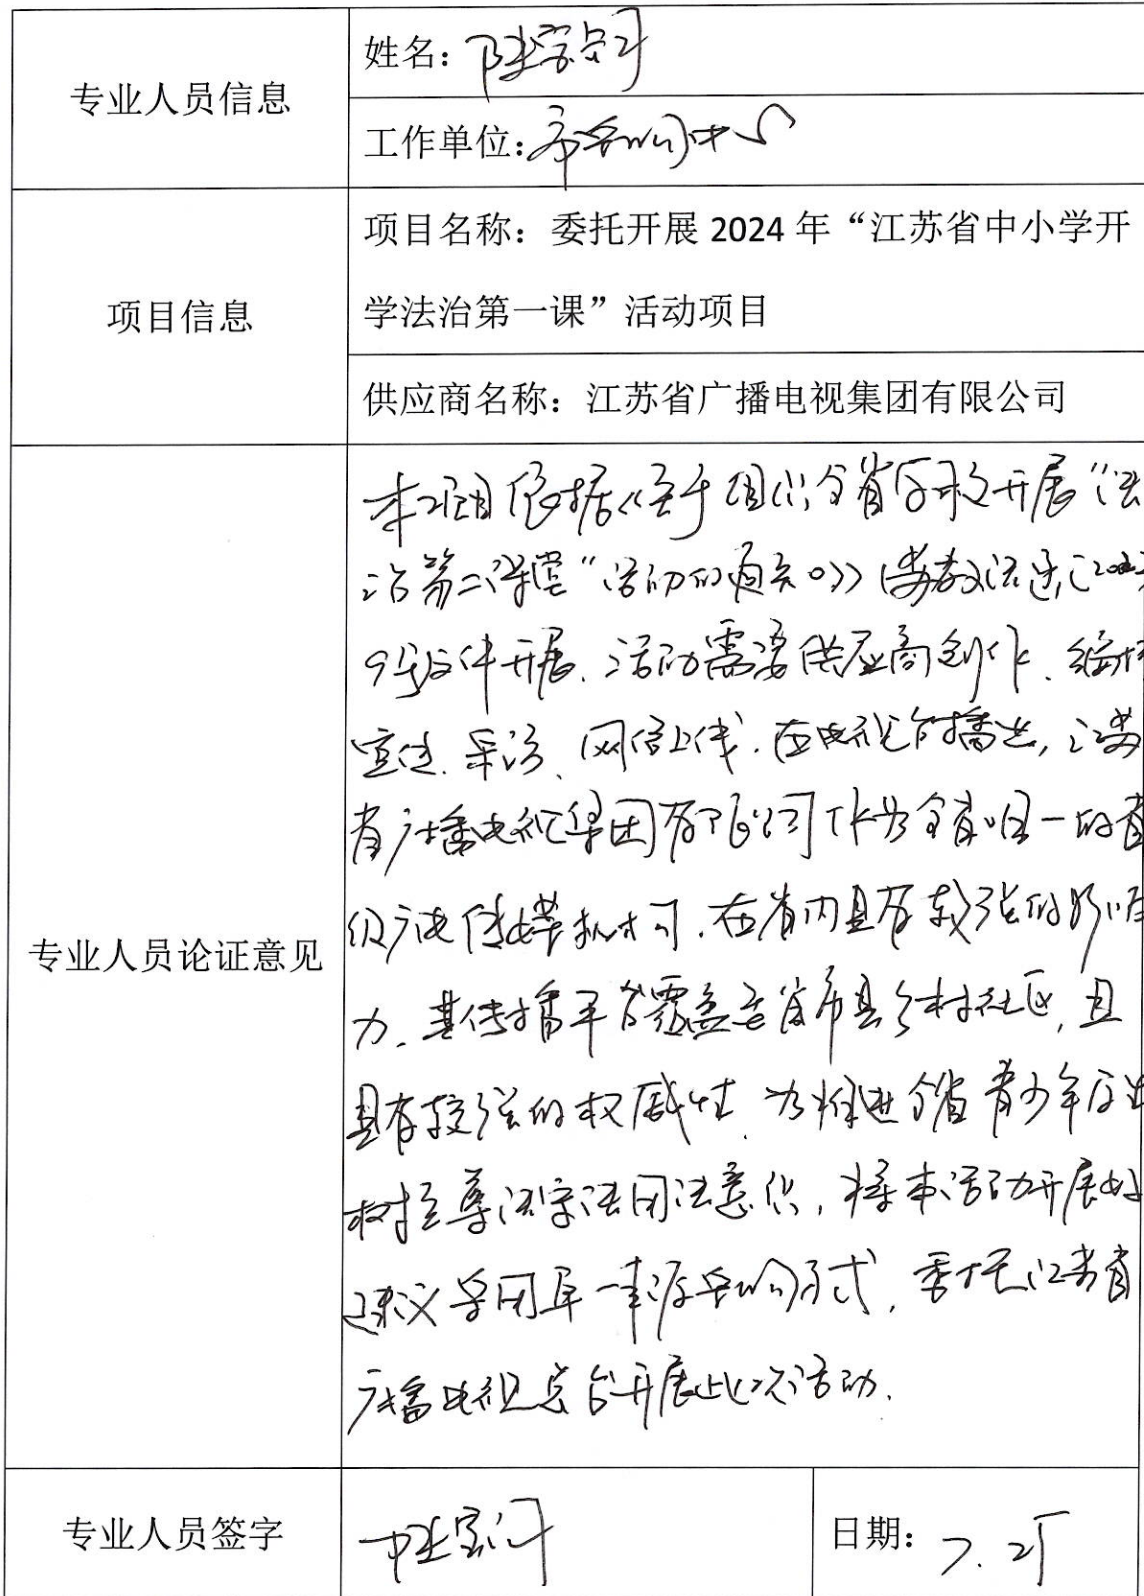 专业人员信息
姓名：
工作单位：市采购中心
项目信息
项目名称：委托开展 2024 年“江苏省中小学开
学法治第一课”活动项目
供应商名称：江苏省广播电视集团有限公司
专业人员论证意见
本项目依据《关于组织全省学校开展“法
治第二课堂”活动的通知》（苏教法函〔202
9号文件开展．活动需要供应商创作、编排
宣传、采访、网络上线．在电视台播出，江苏
省广播电视集团有限公司作为全省唯一的省
级广电传媒机构．在省内具有较强的影响
力．其传播平台覆盖至省市县乡村社区，且
具有较强的权威性．为推进全省青少年
树立尊法学法用法意识，将本活动开展好
建议采用单一来源采购方式，委托江苏省
广播电视总台开展此次活动．
专业人员签字
日期：7.25